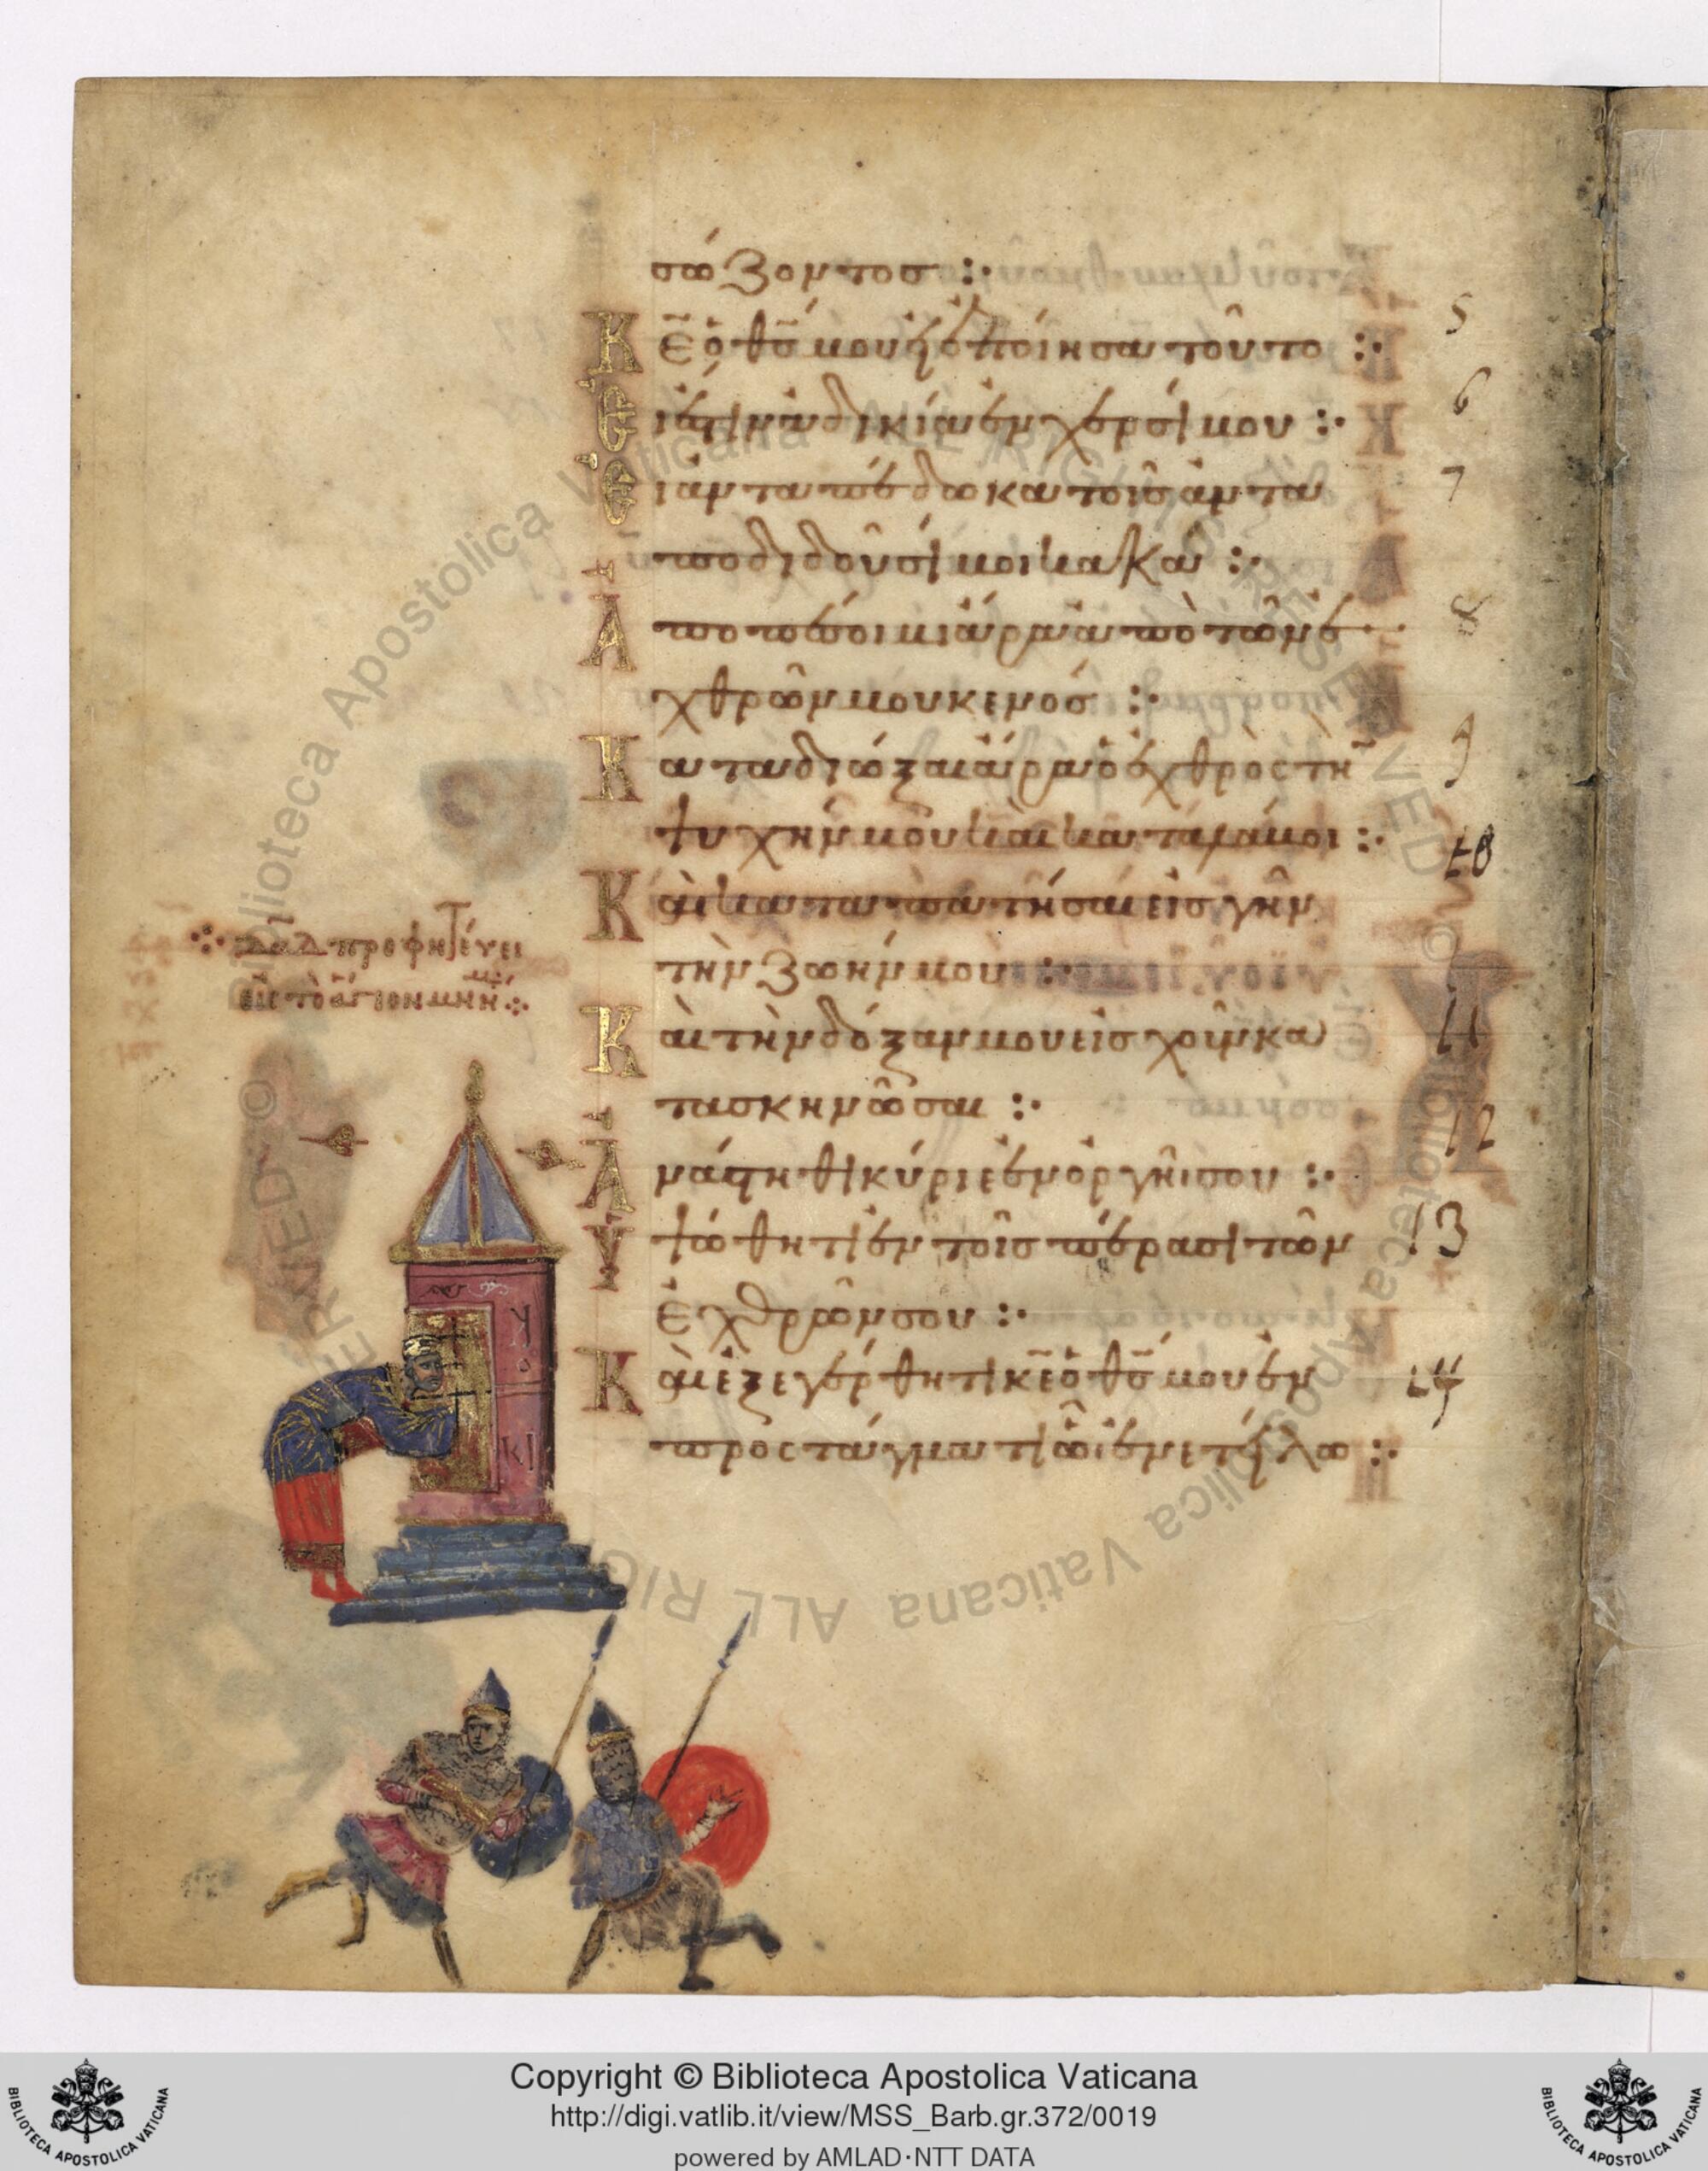 σώζοντος :·
Κε̄ ὁ θς̄ μου εἰ ἐποίησα τοῦτο :·
5
Εἰ ἔστιν ἀδικία ἐν χερσί μου :·
6
Εἰ ἀνταπέδωκα τοῖς ἀντα
7
ποδιδοῦσί μοι κακά :·
Ἀποπέσοιμι ἄρα ἀπὸ τῶν ἐ
8
χθρῶν μου κενός :·
Καταδιώξαι ἄρα ὁ ἐχθρὸς τὴ̄
9
ψυχήν μου καὶ καταλάβοι :·
10
Καὶ καταπατήσαι εἰς γῆν
τὴν ζωήν μου :·
Δαδ προφητεύει
εἰς τὸν ἅγιον μην
Καὶ τὴν δόξαν μου εἰς χοῦν κα
11
τασκηνῶσαι :·
12
Ἀνάστηθι κύριε ἐν ὀργῆι σου :·
Ὑψώθητι ἐν τοῖς πέρασι τῶν
13
ἐχθρῶν σου :·
Καὶ ἐξεγέρθητι κε̄ ὁ θς̄ μου ἐν
14
προστάγματι ὧι ἐνετείλω :·
Copyright © Biblioteca Apostolica Vaticana
http://digi.vatlib.it/view/MSS_Barb.gr.372/0019
powered by AMLAD·NTT DATA
BIBLIOTECA APOSTOLICA VATICANA
BIBLIOTECA APOSTOLICA VATICANA
Biblioteca Apostolica Vaticana ALL RIGHTS RESERVED ©
Biblioteca Apostolica Vaticana ALL RIGHTS RESERVED ©